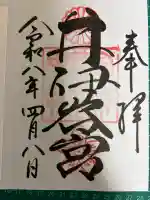 奉拝
井伊谷宮
令和八年四月八日